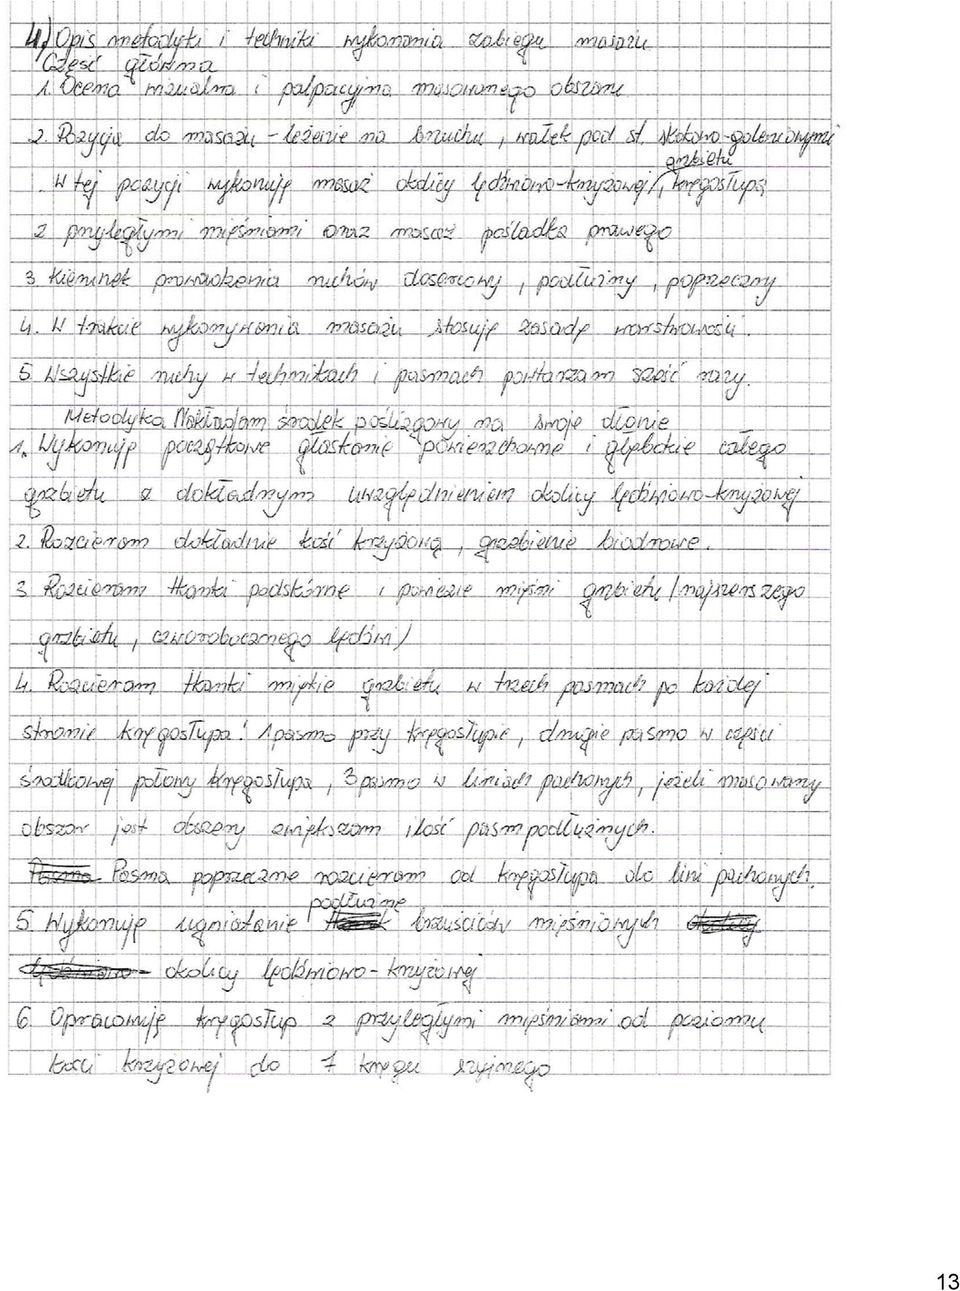 4) Opis metodyki i techniki wykonania zabiegu masażu
Część główna
1. Ocena wizualna i palpacyjna masowanego obszaru
2. Pozycja do masażu - leżenie na brzuchu, wałek pod st. skokowo-goleniowymi
grzbietu
. W tej pozycji wykonuję masaż okolicy lędźwiowo-krzyżowej/, kręgosłupa
z przyległymi mięśniami oraz masaż pośladka prawego
3. Kierunek prowadzenia ruchów dosercowy, podłużny, poprzeczny
4. W trakcie wykonywania masażu stosuję zasadę warstwowości.
5 Wszystkie ruchy w technikach i pasmach powtarzam sześć razy.
Metodyka Nakładam środek poślizgowy na swoje dłonie
1. Wykonuję początkowe głaskanie powierzchowne i głębokie całego
grzbietu z dokładnym uwzględnieniem okolicy lędźwiowo-krzyżowej
2. Rozcieram dokładnie kość krzyżową, grzebienie biodrowe.
3 Rozcieram tkanki podskórne i powięzie mięśni grzbietu /najszerszego
grzbietu, czworobocznego lędźwi/
4. Rozcieram tkanki miękkie grzbietu w trzech pasmach po każdej
stronie kręgosłupa: 1 pasmo przy kręgosłupie, drugie pasmo w części
środkowej połowy kręgosłupa, 3 pasmo w liniach pachowych, jeżeli masowany
obszar jest obszerny zwiększam ilość pasm podłużnych.
Pasma Pasma poprzeczne rozcieram od kręgosłupa do lini pachowych.
podłużne
5. Wykonuję ugniatanie brzuśców mięśniowych okolicy
lędźwiowo - okolicy lędźwiowo - krzyżowej
6. Opracowuję kręgosłup z przyległymi mięśniami od poziomu
kości krzyżowej do 7 kręgu szyjnego
13